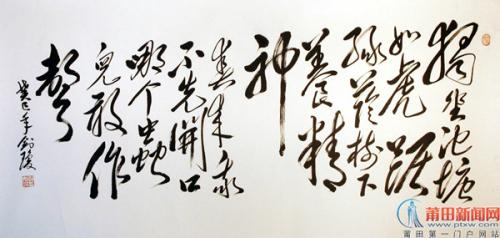 獨坐池塘
如虎踞
綠蔭樹下
養精
神
春來我
不先開口
哪个虫
兒敢作
聲
癸巳年
莆田新闻网
www.ptxw.com
莆田第一门户网站